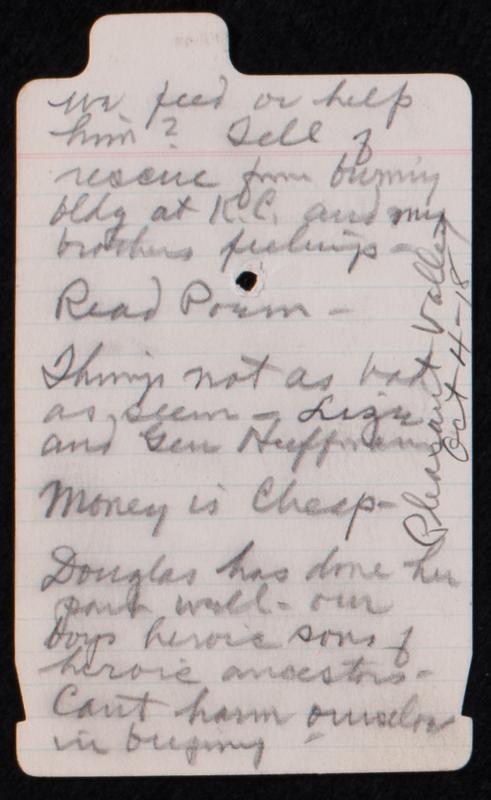 we feed or help
him? Tell of
rescue from burning
bldg at K.C. and my
brothers feelings -
Read Poem -
Things not as bad
as seem - Lizu
and Gen Huffman
Money is Cheap -
Douglas has done her
part well - our
boys heroic sons of
heroic ancestors -
Cant harm ourselves
in buying
Pleasant Valley
Oct 4-18